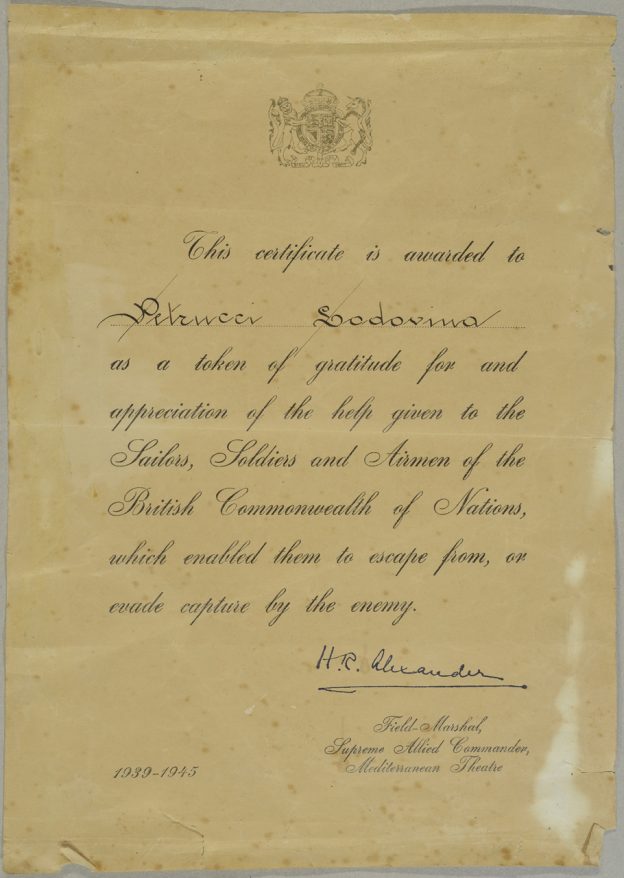 This certificate is awarded to
Petrucci Lodovina
as a token of gratitude for and
appreciation of the help given to the
Sailors, Soldiers and Airmen of the
British Commonwealth of Nations,
which enabled them to escape from, or
evade capture by the enemy.
H.R. Alexander
Field-Marshal,
Supreme Allied Commander,
Mediterranean Theatre
1939-1945